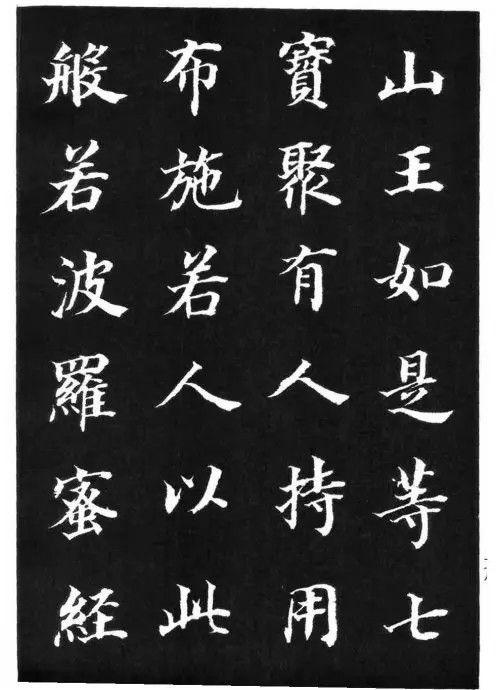 山王如是等七
寶聚有人持用
布施若人以此
般若波羅蜜經